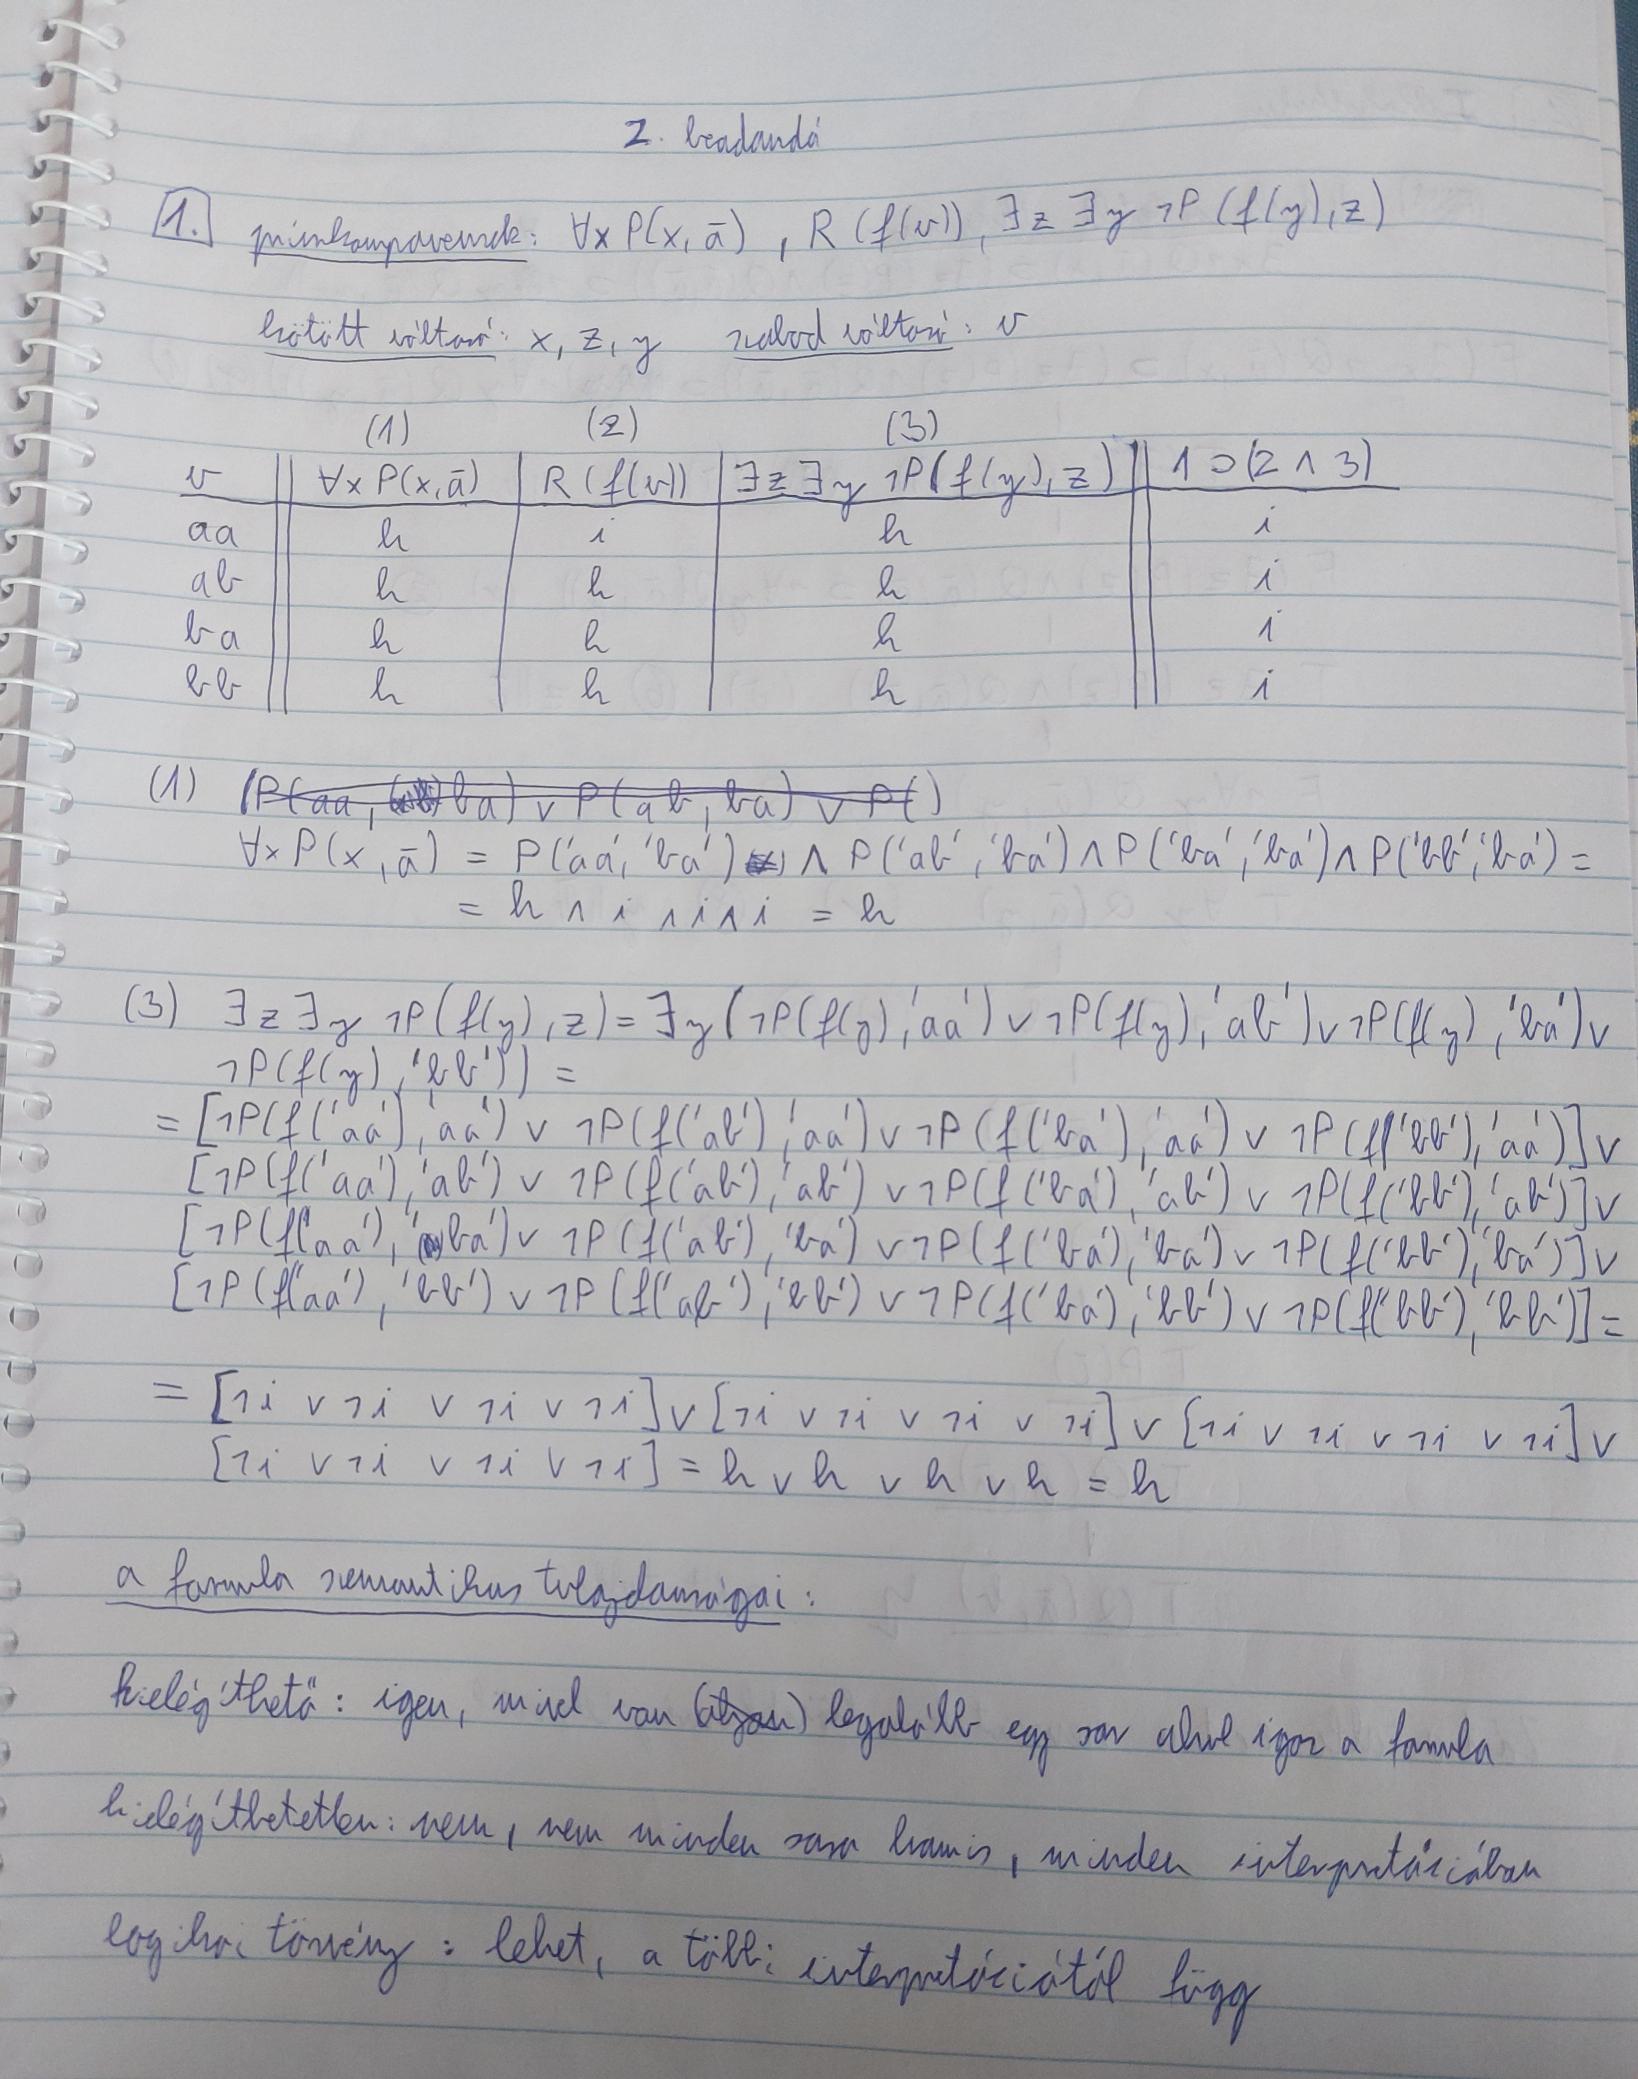 2. beadandó
1. prímkomponensek: ∀x P(x, ā) , R (f(v)), ∃z ∃y ¬P (f(y), z)
kötött változó: x, z, y szabad változó: v
(1) (2) (3)
v ∀x P(x, ā) R (f(v)) ∃z ∃y ¬P(f(y), z) 1 ⊃ (2 ∧ 3)
aa h i h i
ab h h h i
ba h h h i
bb h h h i
(1) (P(aa, ba) ∨ P(ab, ba) ∨ P( )
∀x P(x, ā) = P('aa', 'ba') ∧ P('ab', 'ba') ∧ P('ba', 'ba') ∧ P('bb', 'ba') =
= h ∧ i ∧ i ∧ i = h
(3) ∃z ∃y ¬P(f(y), z) = ∃y (¬P(f(y), 'aa') ∨ ¬P(f(y), 'ab') ∨ ¬P(f(y), 'ba') ∨
¬P(f(y), 'bb')) =
= [¬P(f('aa'), 'aa') ∨ ¬P(f('ab'), 'aa') ∨ ¬P(f('ba'), 'aa') ∨ ¬P(f('bb'), 'aa')] ∨
[¬P(f('aa'), 'ab') ∨ ¬P(f('ab'), 'ab') ∨ ¬P(f('ba'), 'ab') ∨ ¬P(f('bb'), 'ab')] ∨
[¬P(f('aa'), 'ba') ∨ ¬P(f('ab'), 'ba') ∨ ¬P(f('ba'), 'ba') ∨ ¬P(f('bb'), 'ba')] ∨
[¬P(f('aa'), 'bb') ∨ ¬P(f('ab'), 'bb') ∨ ¬P(f('ba'), 'bb') ∨ ¬P(f('bb'), 'bb')] =
= [¬i ∨ ¬i ∨ ¬i ∨ ¬i] ∨ [¬i ∨ ¬i ∨ ¬i ∨ ¬i] ∨ [¬i ∨ ¬i ∨ ¬i ∨ ¬i] ∨
[¬i ∨ ¬i ∨ ¬i ∨ ¬i] = h ∨ h ∨ h ∨ h = h
a formula szemantikus tulajdonságai:
kielégíthető: igen, mivel van (olyan) legalább egy sor ahol igaz a formula
kielégíthetetlen: nem, nem minden sora hamis, minden interpretációban
logikai törvény: lehet, a többi interpretációtól függ